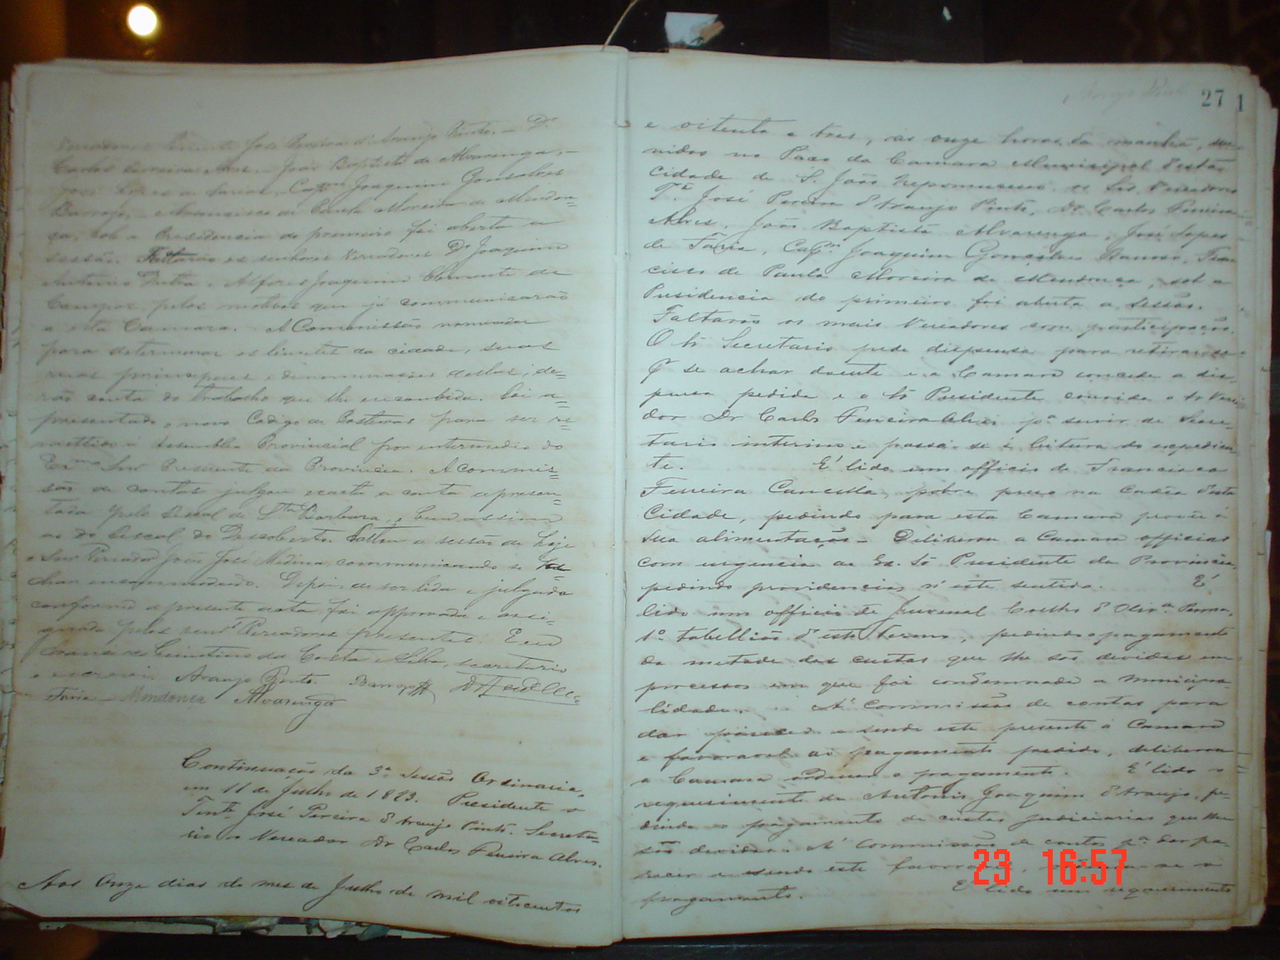 Vereadores Tenente José Pereira d'Araujo Pinto, Dr
Carlos Ferreira Alves, João Baptista de Alvarenga,
José Lopes de Faria, Cappm Joaquim Gonsalves
Barroso, e Francisco de Paula Moreira de Mendon
ça, sob a Presidencia do primeiro foi aberta a
sessão. Faltarão os senhores Vereadores Dr Joaquim
Antonio Dutra e Alferes Joaquim Clemente de
Campos pelos motivos que já communicarão
a esta Camara. A Commissão nomeada
para determinar os limites da cidade, suas
ruas principaes e denominações dellas, de=
rão conta do trabalho que lhe encumbida. Foi a=
presentado o novo Codigo de Posturas para ser re
mettido á Assemblea Provincial por intermedio do
Exmo Snr Presidente da Provincia. A Commis=
são de contas julgou exacta a conta apresen=
tada pelo Fiscal de Sta Barbara, e bem assim
as do Fiscal do Descoberto. Faltou a sessão de hoje
o Snr Vereador João José Medina, communicando se
char incommodado. Depois de ser lida e julgada
conforme a presente acta foi approvada e assi=
gnada pelos senrs Vereadores presentes. E eu
da Costa e Silva, secretario
o escrevi. Araujo Pinto Barroso
Faria - Mendonça Alvarenga
Continuação da 3ª Sessão Ordinaria,
em 11 de Julho de 1883. Presidente o
Tente José Pereira d'Araujo Pinto. Secreta-
rio o Vereador Dr Carlos Ferreira Alves.
Aos Onze dias do mez de Julho de mil oitocentos
Araujo Pinto
27 1
e oitenta e tres, ás onze horas da manhã, reu-
nidos no Paço da Camara Municipal desta
cidade de S. João Nepomuceno os Srs Vereadores
Te José Pereira d'Araujo Pinto, Dr Carlos Ferreira
Alves, João Baptista Alvarenga, José Lopes
de Faria, Capm Joaquim Gonçalves Barroso, Fran
cisco de Paula Moreira de Mendonça, sob a
Presidencia do primeiro foi aberta a sessão.
Faltarão os mais Vereadores com participação.
O Sr Secretario pede dispensa para retirar-se
p se achar doente e a Camara concede a dis-
pensa pedida e o Sr Presidente convida o Sr Verea
dor Dr Carlos Ferreira Alves pa servir de Secre
tario interino e passa-se á leitura do expedien
te. É lido um officio de Francisco
Ferreira Cancella, pobre, preso na Cadêa desta
Cidade, pedindo para esta Camara provêr á
sua alimentação - Delibera a Camara officiar
com urgencia ao Ex. Sr Presidente da Provincia,
pedindo providencias n'este sentido. É
lido um officio de Juvenal Coelho d'Olivra Penna,
1º tabellião d'este termo, pedindo o pagamento
da metade das custas que lhe são devidas em
processos em que foi condemnada a municipa-
lidade. - A' Commissão de contas para
dar parecer e sendo este presente á Camara
e favoravel ao pagamento pedido, delibera
a Camara ordenar o pagamento. É lido o
requerimento de Antonio Joaquim d'Araujo, pe-
dindo o pagamento de custas judiciarias que lhe
são devidas. A' Commissão de contas pa dar pa-
recer e sendo este favoravel,
pagamento. É lido um requerimento
23 16:57